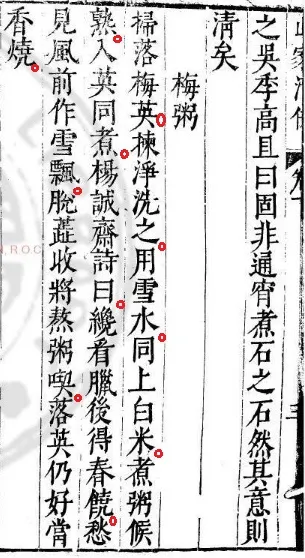 之吳季高且曰固非通宵煮石之石然其意則
清矣
梅粥
掃落梅英揀淨洗之用雪水同上白米煮粥候
熟入英同煮楊誠齋詩曰纔看臘後得春饒愁
見風前作雪飄脫蕋收將熬粥喫落英仍好當
香燒